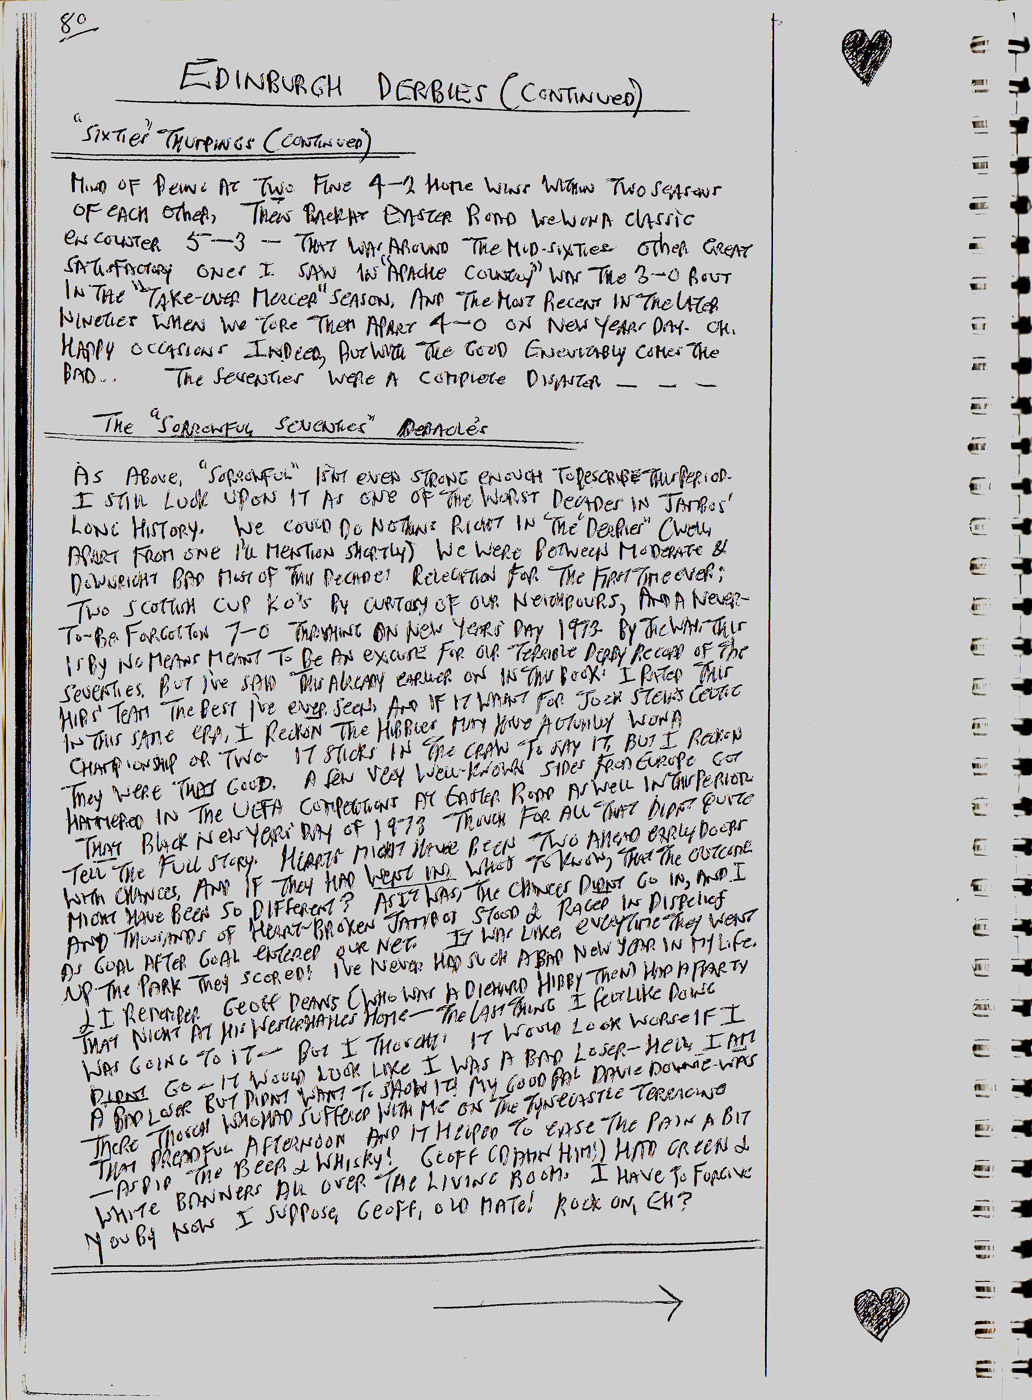 80
EDINBURGH DERBIES (CONTINUED)
"SIXTIES" THUMPINGS (CONTINUED)
MIND OF BEING AT TWO FINE 4-2 HOME WINS WITHIN TWO SEASONS
OF EACH OTHER, THEN BACK AT EASTER ROAD WE WON A CLASSIC
ENCOUNTER 5-3 - THAT WAS AROUND THE MID-SIXTIES OTHER GREAT
SATISFACTORY ONES I SAW IN "APACHE COUNTRY" WAS THE 3-0 BOUT
IN THE "TAKE-OVER MERCER" SEASON, AND THE MOST RECENT IN THE LATER
NINETIES WHEN WE TORE THEM APART 4-0 ON NEW YEARS DAY. OH,
HAPPY OCCASIONS INDEED, BUT WITH THE GOOD ENEVITABLY COMES THE
BAD... THE SEVENTIES WERE A COMPLETE DISASTER - - -
THE "SORROWFUL SEVENTIES" DEBACLES
AS ABOVE, "SORROWFUL" ISN'T EVEN STRONG ENOUGH TO DESCRIBE THIS PERIOD.
I STILL LOOK UPON IT AS ONE OF THE WORST DECADES IN JAMBOS'
LONG HISTORY. WE COULD DO NOTHING RIGHT IN "THE DERBIES" (WELL
APART FROM ONE I'LL MENTION SHORTLY) WE WERE BETWEEN MODERATE &
DOWNRIGHT BAD MOST OF THIS DECADE! RELEGATION FOR THE FIRST TIME EVER;
TWO SCOTTISH CUP K.O'S BY CURTOSY OF OUR NEIGHBOURS, AND A NEVER-
TO-BE FORGOTTON 7-0 THRASHING ON NEW YEARS DAY 1973. BY THE WAY THIS
IS BY NO MEANS MEANT TO BE AN EXCUSE FOR OUR TERRIBLE DERBY RECORD OF THE
SEVENTIES, BUT I'VE SAID THIS ALREADY EARLIER ON IN THIS BOOK: I RATED THIS
HIBS' TEAM THE BEST I'VE EVER SEEN, AND IF IT WASN'T FOR JOCK STEIN'S CELTIC
IN THIS SAME ERA, I RECKON THE HIBBIES MAY HAVE ACTUALLY WON A
CHAMPIONSHIP OR TWO. IT STICKS IN THE CRAW TO SAY IT, BUT I RECKON
THEY WERE THAT GOOD. A FEW VERY WELL-KNOWN SIDES FROM EUROPE GOT
HAMMERED IN THE UEFA COMPETITIONS AT EASTER ROAD AS WELL IN THIS PERIOD.
THAT BLACK NEW YEARS' DAY OF 1973 THOUGH FOR ALL THAT DIDN'T QUITE
TELL THE FULL STORY. HEARTS MIGHT HAVE BEEN TWO AHEAD EARLY DOORS
WITH CHANCES, AND IF THEY HAD WENT IN, WHO'S TO KNOW, THAT THE OUTCOME
MIGHT HAVE BEEN SO DIFFERENT? AS IT WAS, THE CHANCES DIDN'T GO IN, AND I
AND THOUSANDS OF HEART-BROKEN JAMBOS STOOD & RAGED IN DISBELIEF
AS GOAL AFTER GOAL ENTERED OUR NET. IT WAS LIKE, EVERYTIME THEY WENT
UP THE PARK THEY SCORED! I'VE NEVER HAD SUCH A BAD NEW YEAR IN MY LIFE.
& I REMEMBER GEOFF DEANS (WHO WAS A DIEHARD HIBBY THEN) HAD A PARTY
THAT NIGHT AT HIS WESTERHAILES HOME - THE LAST THING I FELT LIKE DOING
WAS GOING TO IT - BUT I THOUGHT: IT WOULD LOOK WORSE IF I
DIDN'T GO - IT WOULD LOOK LIKE I WAS A BAD LOSER - HELL I AM
A BAD LOSER BUT DIDN'T WANT TO SHOW IT! MY GOOD PAL DAVIE DOWNIE WAS
THERE THOUGH WHO HAD SUFFERED WITH ME ON THE TYNECASTLE TERRACING
THAT DREADFUL AFTERNOON AND IT HELPED TO EASE THE PAIN A BIT
- AS DID THE BEER & WHISKY! GEOFF (DAMN HIM!) HAD GREEN &
WHITE BANNERS ALL OVER THE LIVING ROOM. I HAVE TO FORGIVE
YOU BY NOW I SUPPOSE, GEOFF, OLD MATE! ROCK ON, EH?